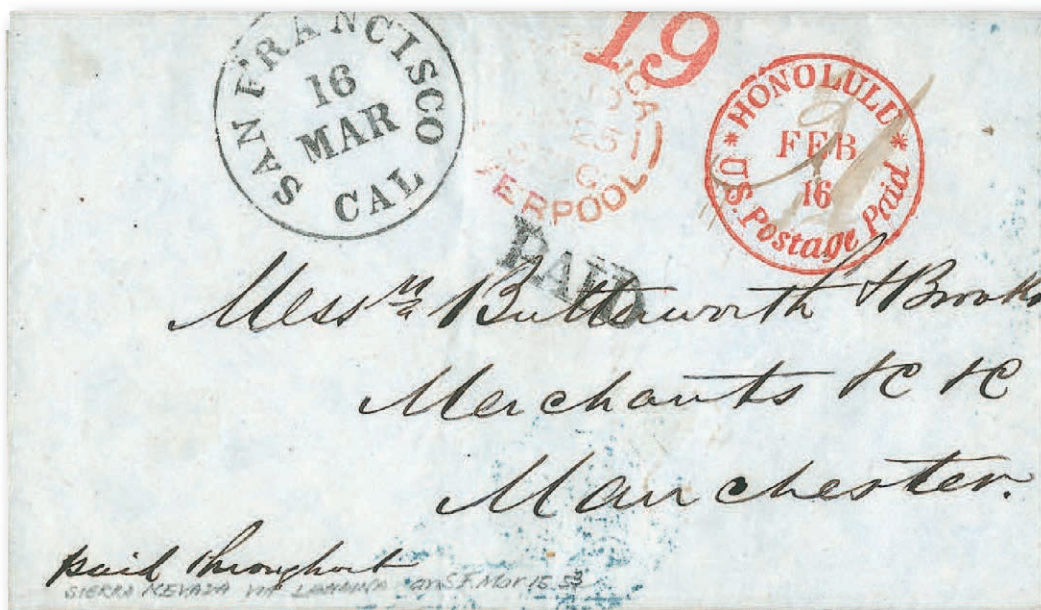 SAN FRANCISCO
16
MAR
CAL
19
HONOLULU
FEB
16
U.S. Postage Paid
PAID
Mess.rs Butterworth & Brooks
Merchants &c &c
Manchester.
paid throughout
SIERRA NEVADA VIA LAHAINA arr S.F. Mar 15.53